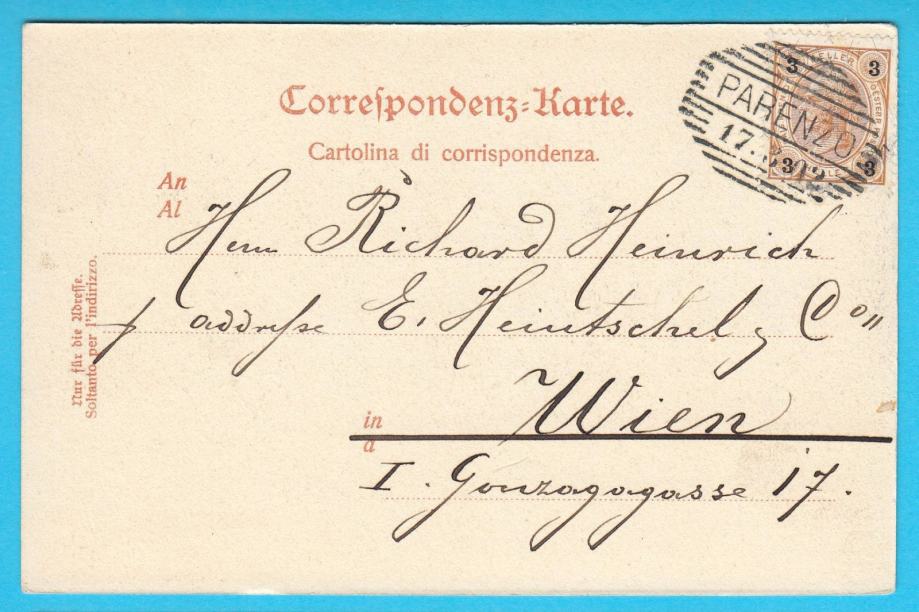 Correſpondenz-Karte.
Cartolina di corrispondenza.
3 HELLER 3
3 3
PARENZO
17. 02
An
Al
Herrn Richard Heinrich
p addresse E. Heintschel & Co
in
a
Wien
I. Gonzagagasse 17.
Nur für die Adreſſe.
Soltanto per l'indirizzo.